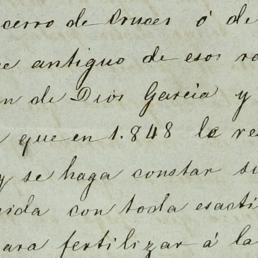 cerro de Cruces ó de
e antiguo de esos
n de Dios Garcia y
que en 1.848 le re
y se haga constar su
ida con toda exacti
para fertilizar á la